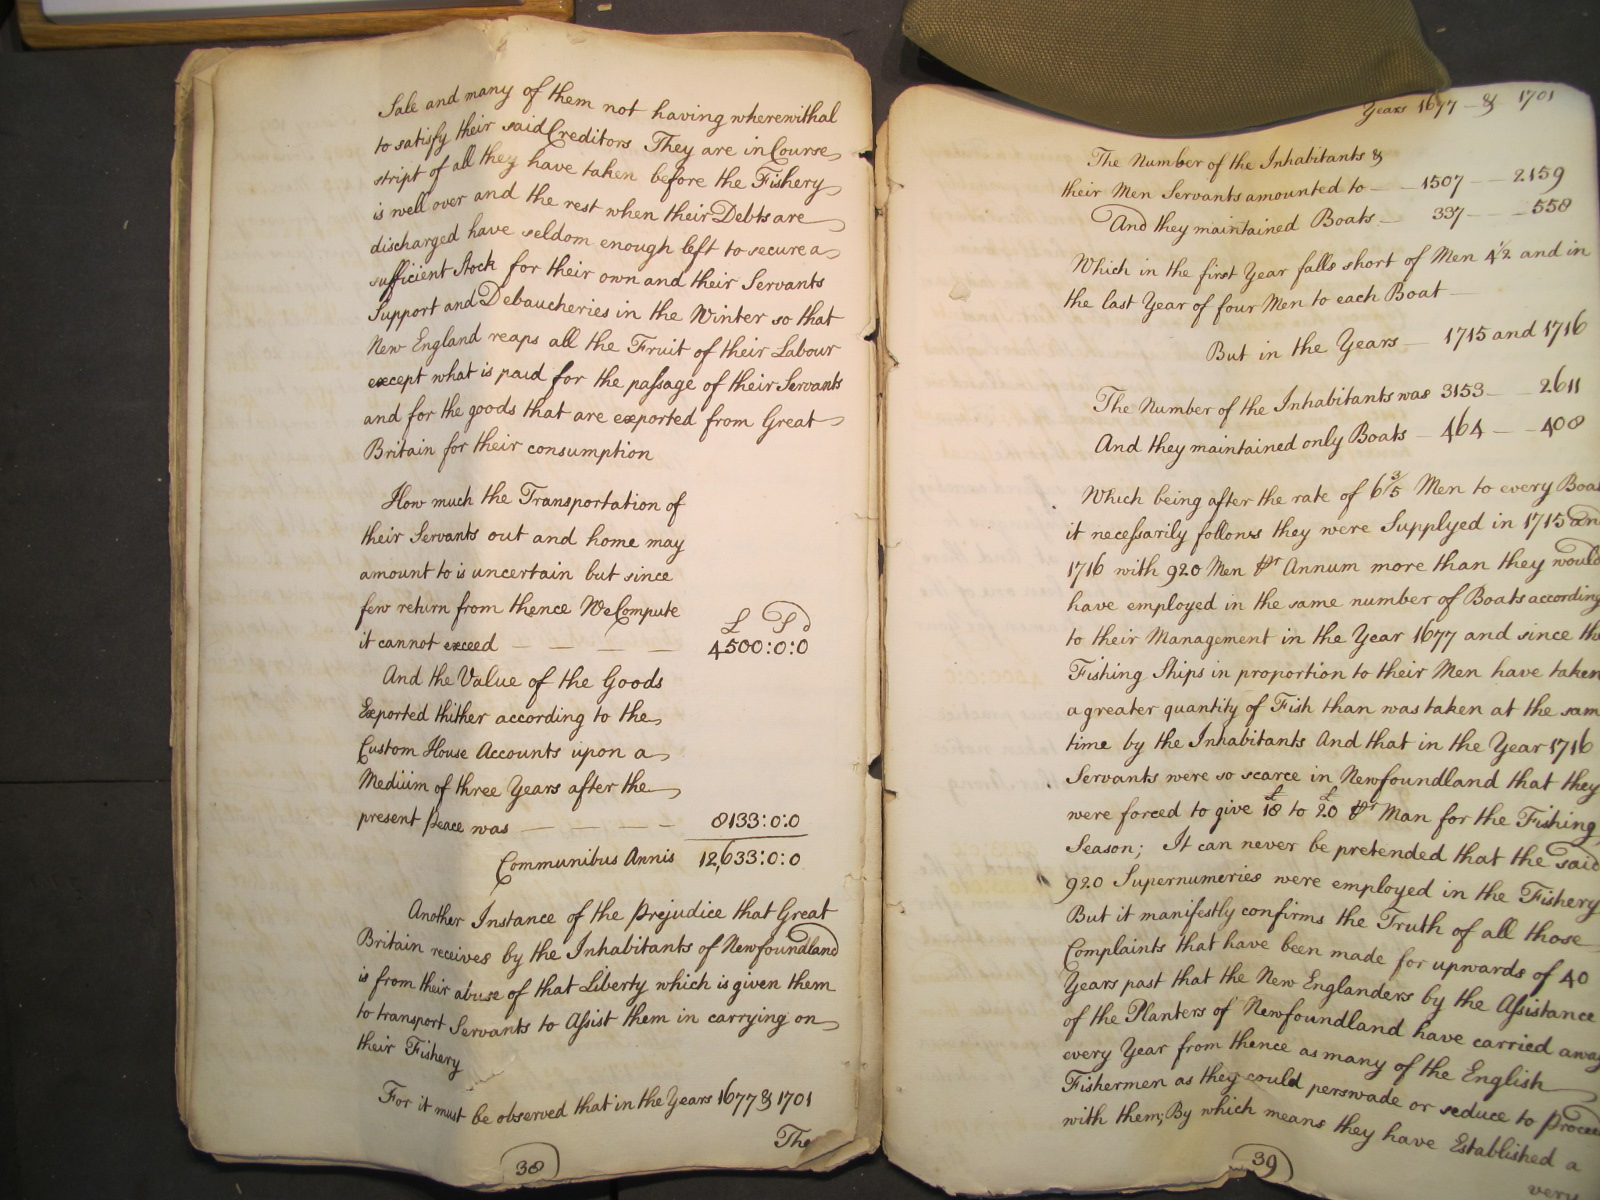 Sale and many of them not having wherewithal
to satisfy their said Creditors They are in Course
stript of all they have taken before the Fishery
is well over and the rest when their Debts are
discharged have seldom enough left to secure a
sufficient Stock for their own and their Servants
Support and Debaucheries in the Winter so that
New England reaps all the Fruit of their Labour
except what is paid for the passage of their Servants
and for the goods that are exported from Great
Britain for their consumption
How much the Transportation of
their Servants out and home may
amount to is uncertain but since
few return from thence We Compute
£ S d
it cannot exceed — — — — 4500:0:0
And the Value of the Goods
Exported thither according to the
Custom House Accounts upon a
Medium of three Years after the
present Peace was — — — — 8133:0:0
Communibus Annis 12,633:0:0
Another Instance of the Prejudice that Great
Britain receives by the Inhabitants of Newfoundland
is from their abuse of that Liberty which is given them
to transport Servants to Assist them in carrying on
their Fishery
For it must be observed that in the Years 1677 & 1701
The
38
Years 1677 — & 1701
The Number of the Inhabitants &
their Men Servants amounted to — 1507 — 2159
And they maintained Boats — 337 — 558
Which in the first Year falls short of Men 4½ and in
the last Year of four Men to each Boat —
But in the Years — 1715 and 1716
The Number of the Inhabitants was 3153 — 2611
And they maintained only Boats — 464 — 408
Which being after the rate of 6 3/5 Men to every Boat
it necessarily follows they were Supplyed in 1715 an
1716 with 920 Men Pr Annum more than they would
have employed in the same number of Boats according
to their Management in the Year 1677 and since the
Fishing Ships in proportion to their Men have taken
a greater quantity of Fish than was taken at the sam
time by the Inhabitants And that in the Year 1716
Servants were so scarce in Newfoundland that they
were forced to give £18 to £20 Pr Man for the Fishing
Season; It can never be pretended that the said
920 Supernumeries were employed in the Fishery
But it manifestly confirms the Truth of all those
Complaints that have been made for upwards of 40
Years past that the New Englanders by the Assistance
of the Planters of Newfoundland have carried away
every Year from thence as many of the English
Fishermen as they could perswade or seduce to Procee
with them; By which means they have Established a
39
very